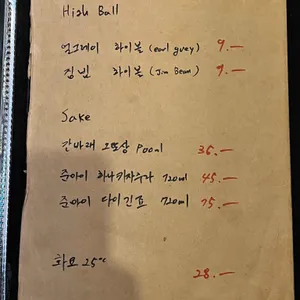 High Ball
얼그레이 하이볼 (earl guey) 9.—
짐빔 하이볼 (Jim Beam) 9.—
Sake
간바래 오또상 900ml 35.—
준마이 하나키자쿠라 720ml 45.—
준마이 다이긴죠 720ml 75.—
화요 25℃ 28.—